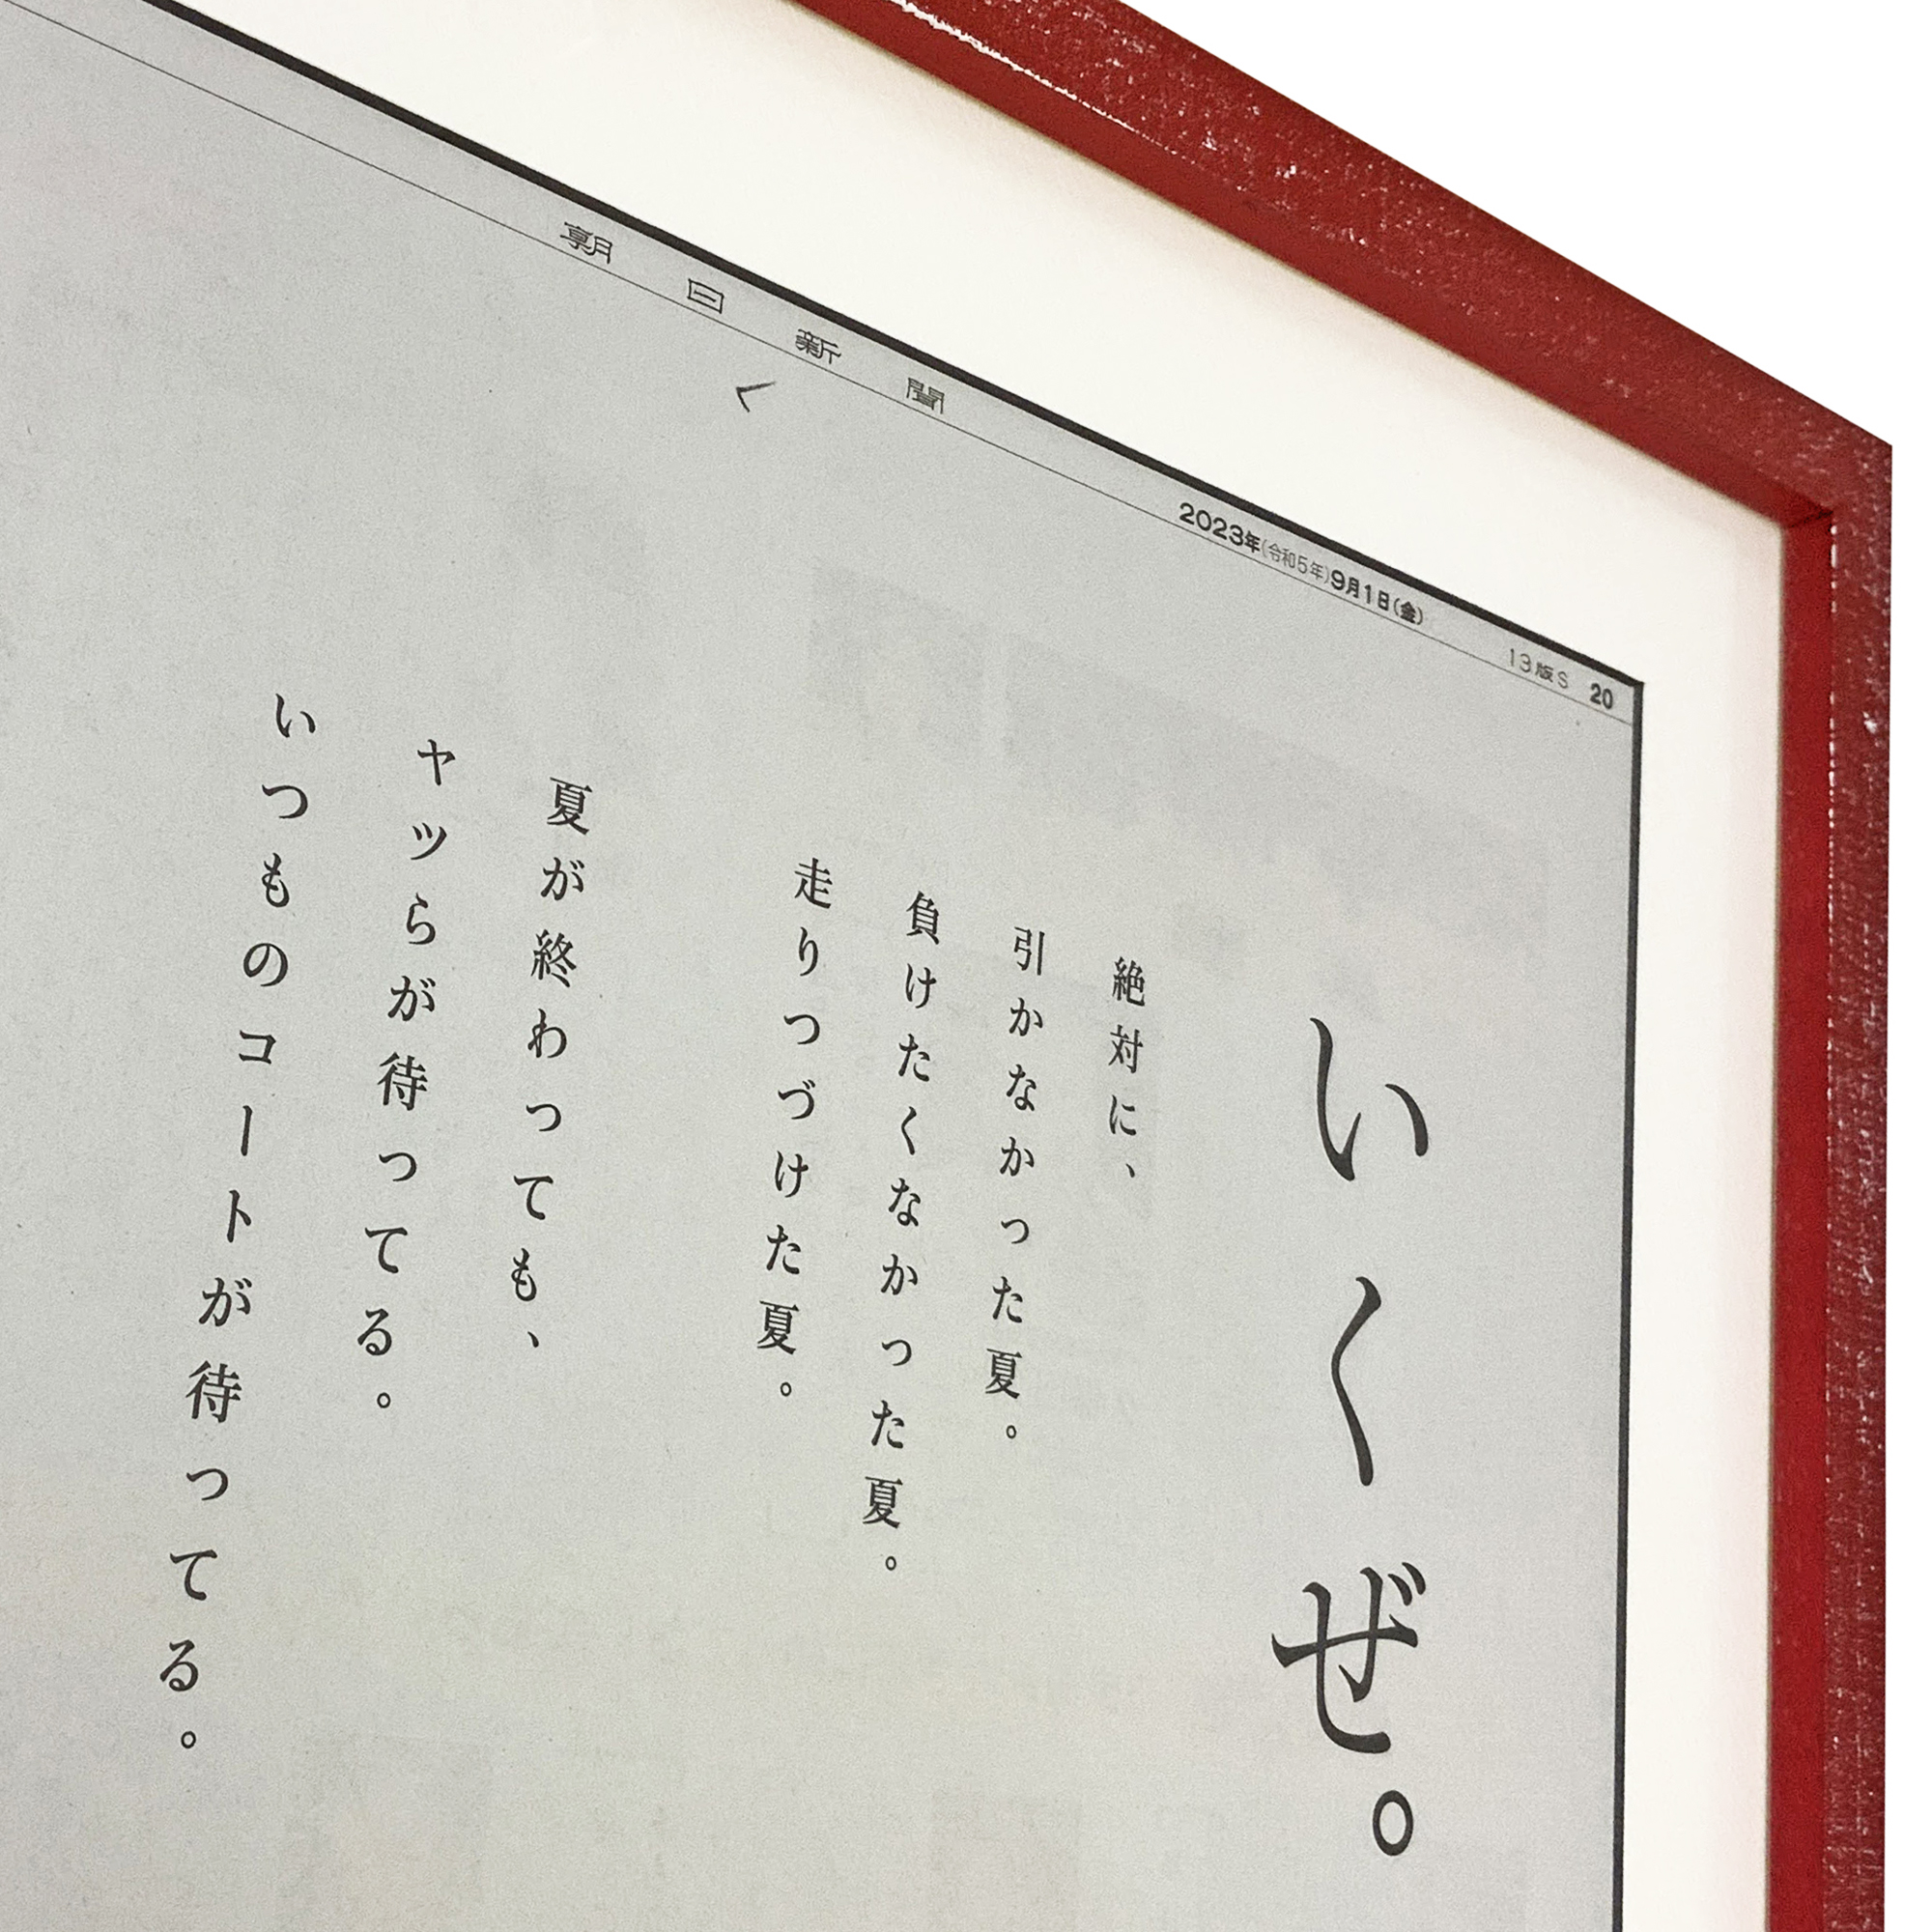 朝日新聞
2023年(令和5年)9月1日(金)
13版S 20
いくぜ。
絶対に、
引かなかった夏。
負けたくなかった夏。
走りつづけた夏。
夏が終わっても、
ヤツらが待ってる。
いつものコートが待ってる。